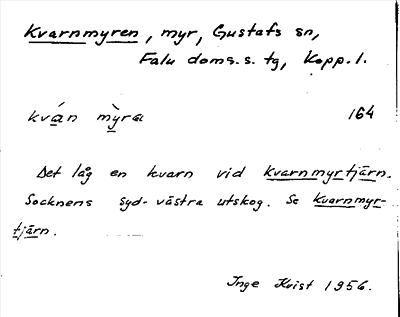 Kvarnmyren, myr, Gustafs sn,
Falu doms.s. tg, Kopp. l.
kván mỳra 164
Det låg en kvarn vid Kvarnmyrtjärn.
Socknens syd-västra utskog. Se Kvarnmyr-
tjärn.
Inge Kvist 1956.